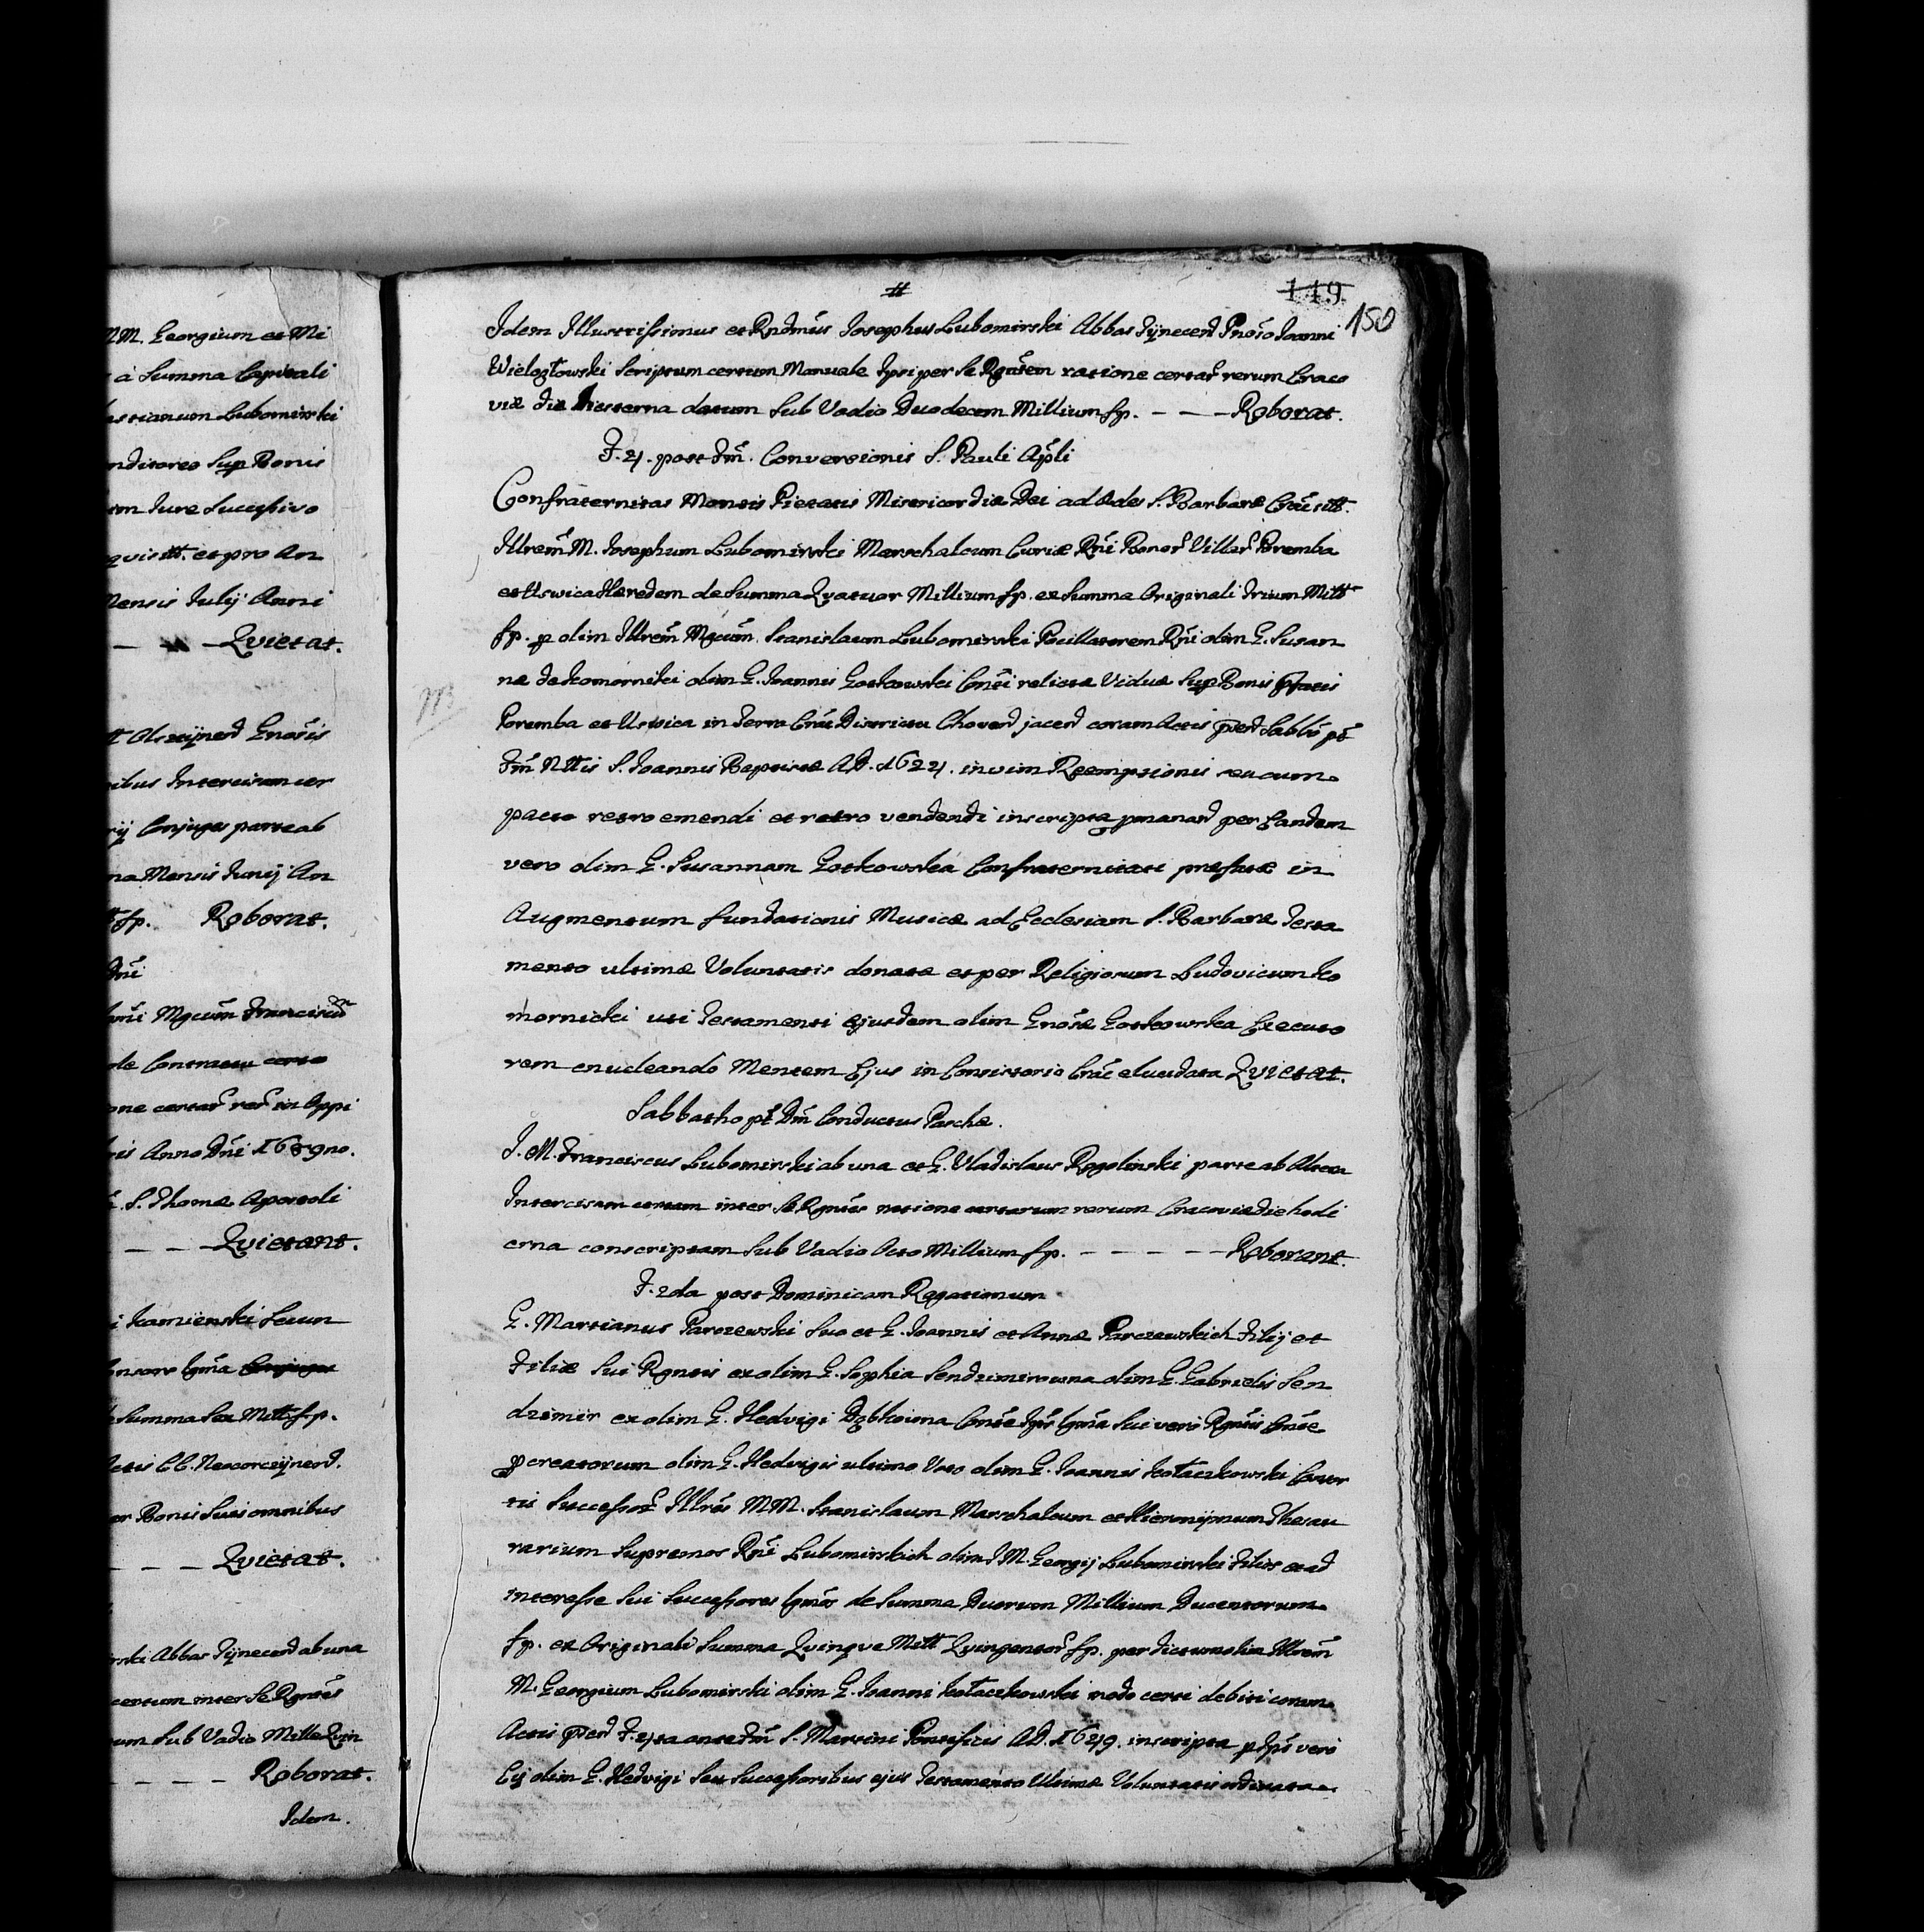 MM. Georgium et Mi
à Summa Capitali
Lubomirski
nditores Sup Bonis
Jure Successivo
et pro An
Mensis Julij Anni
— — Qvietat.
Olszijnen Gnosis
ribus Intercisam cer
rij Conjuges parte ab
na Mensis Junij An
fp. Roborat.
Dni
Mgcum Franciscu
de Contractu certo
one certar rer in Oppi
Anno Dni
S. Thomæ Apostoli
— — Qvietant.
i Kamienski Secun
Summa Sex Mill fp.
Bonis Suis omnibus
— — — Qvietat.
rski Abbas Tijnecen ab una
certum inter Se Rgntes
um Sub Vadio Mille Qvin
— — — — Roborat.
Idem.
#
149
150
Idem Illustrissimus et Rndmus Josephus Lubomirski Abbas Tijnecen Gnoso Joanni
Wielogłowski Scriptum certum Manuale Ipsi per Se Rgntem ratione certar rerum Craco
viæ die hesterna datum Sub Vadio Duodecem Millium fp. — — — Roborat.
F. 4. post Fm. Conversionis S. Pauli Apli
Confraternitas Montis Pietatis Misericordiæ Dei ad Ædes S. Barbaræ
Illrem M. Josephum Lubomirski Marschalcum Curiæ Rni Bonor Villar Poremba
et Uswica Hæredem de Summa Qvatuor Millium fp. ex Summa Originali Trium Mill
fp. p olim Illrem Mgcum Stanislaum Lubomirski Pocillatorem Rni olim G. Susan
næ de Komorniki olim G. Joannis Gostkowski relictæ Viduæ Sup Bonis
Poremba et Uswica in Terra Crac Districtu jacen coram Actis pnt Sabbo pt
Fm Nttis S. Joannis Baptistæ AD. 1624. in vim Reemptionis seu cum
pacto retro emendi et retro vendendi inscripta pmanan per Eandem
vero olim G. Susannam Gostkowska Confraternitati præfatæ in
Augmentum fundationis Musicæ ad Ecclesiam S. Barbaræ Testa
mento ultimæ Voluntatis donata et per Religiosum Ludovicum Ko
mornicki uti Testamenti ejusdem olim Gnosæ Gostkowska Executo
rem enucleando Mentem Ejus in Consistorio Crac elucidata Qvietat.
Sabbatho pt Dm Conductus Paschæ.
J. M. Franciscus Lubomirski ab una et G. Vladislaus Rogolinski parte ab Altera
Intercisam certam inter Se Rgntes ratione certarum rerum Cracoviæ die hodi
erna conscriptam Sub Vadio Octo Millium fp. — — — — — Roborant.
F. 2da post Dominicam Rogationum
G. Martianus Parczewski Suo et G. Joannis et Annæ Parczewskich Filij et
Filiæ Sui Rgntis ex olim G. Sophia Sendzimirowna olim G. Gabrielis Sen
dzimir ex olim G. Hedvigi Sui vero Rgntis
pcreatorum olim G. Hedvigis ultimo Voto olim G. Joannis Kołaczkowski Consor
tis Successor Illres MM. Stanislaum Marschalcum et Hieronijmum Thesau
rarium Supremos Rni Lubomirskich olim J M. Georgij Lubomirski Filios ac ad
interesse Sui Successores de Summa Duorum Millium Ducentorum
fp. ex Originali Summa Qvinqve Mill Qvingentor fp. per dictum olim Illrem
M. Georgium Lubomirski olim G. Joanni Kołaczkowski modo certi debiti coram
Actis F. 4ta ante Fm S. Martini Pontificis AD. 1649. inscripta vero
Eij olim G. Hedvigi Seu Successoribus ejus Testamento Ultimæ Voluntatis ordinata